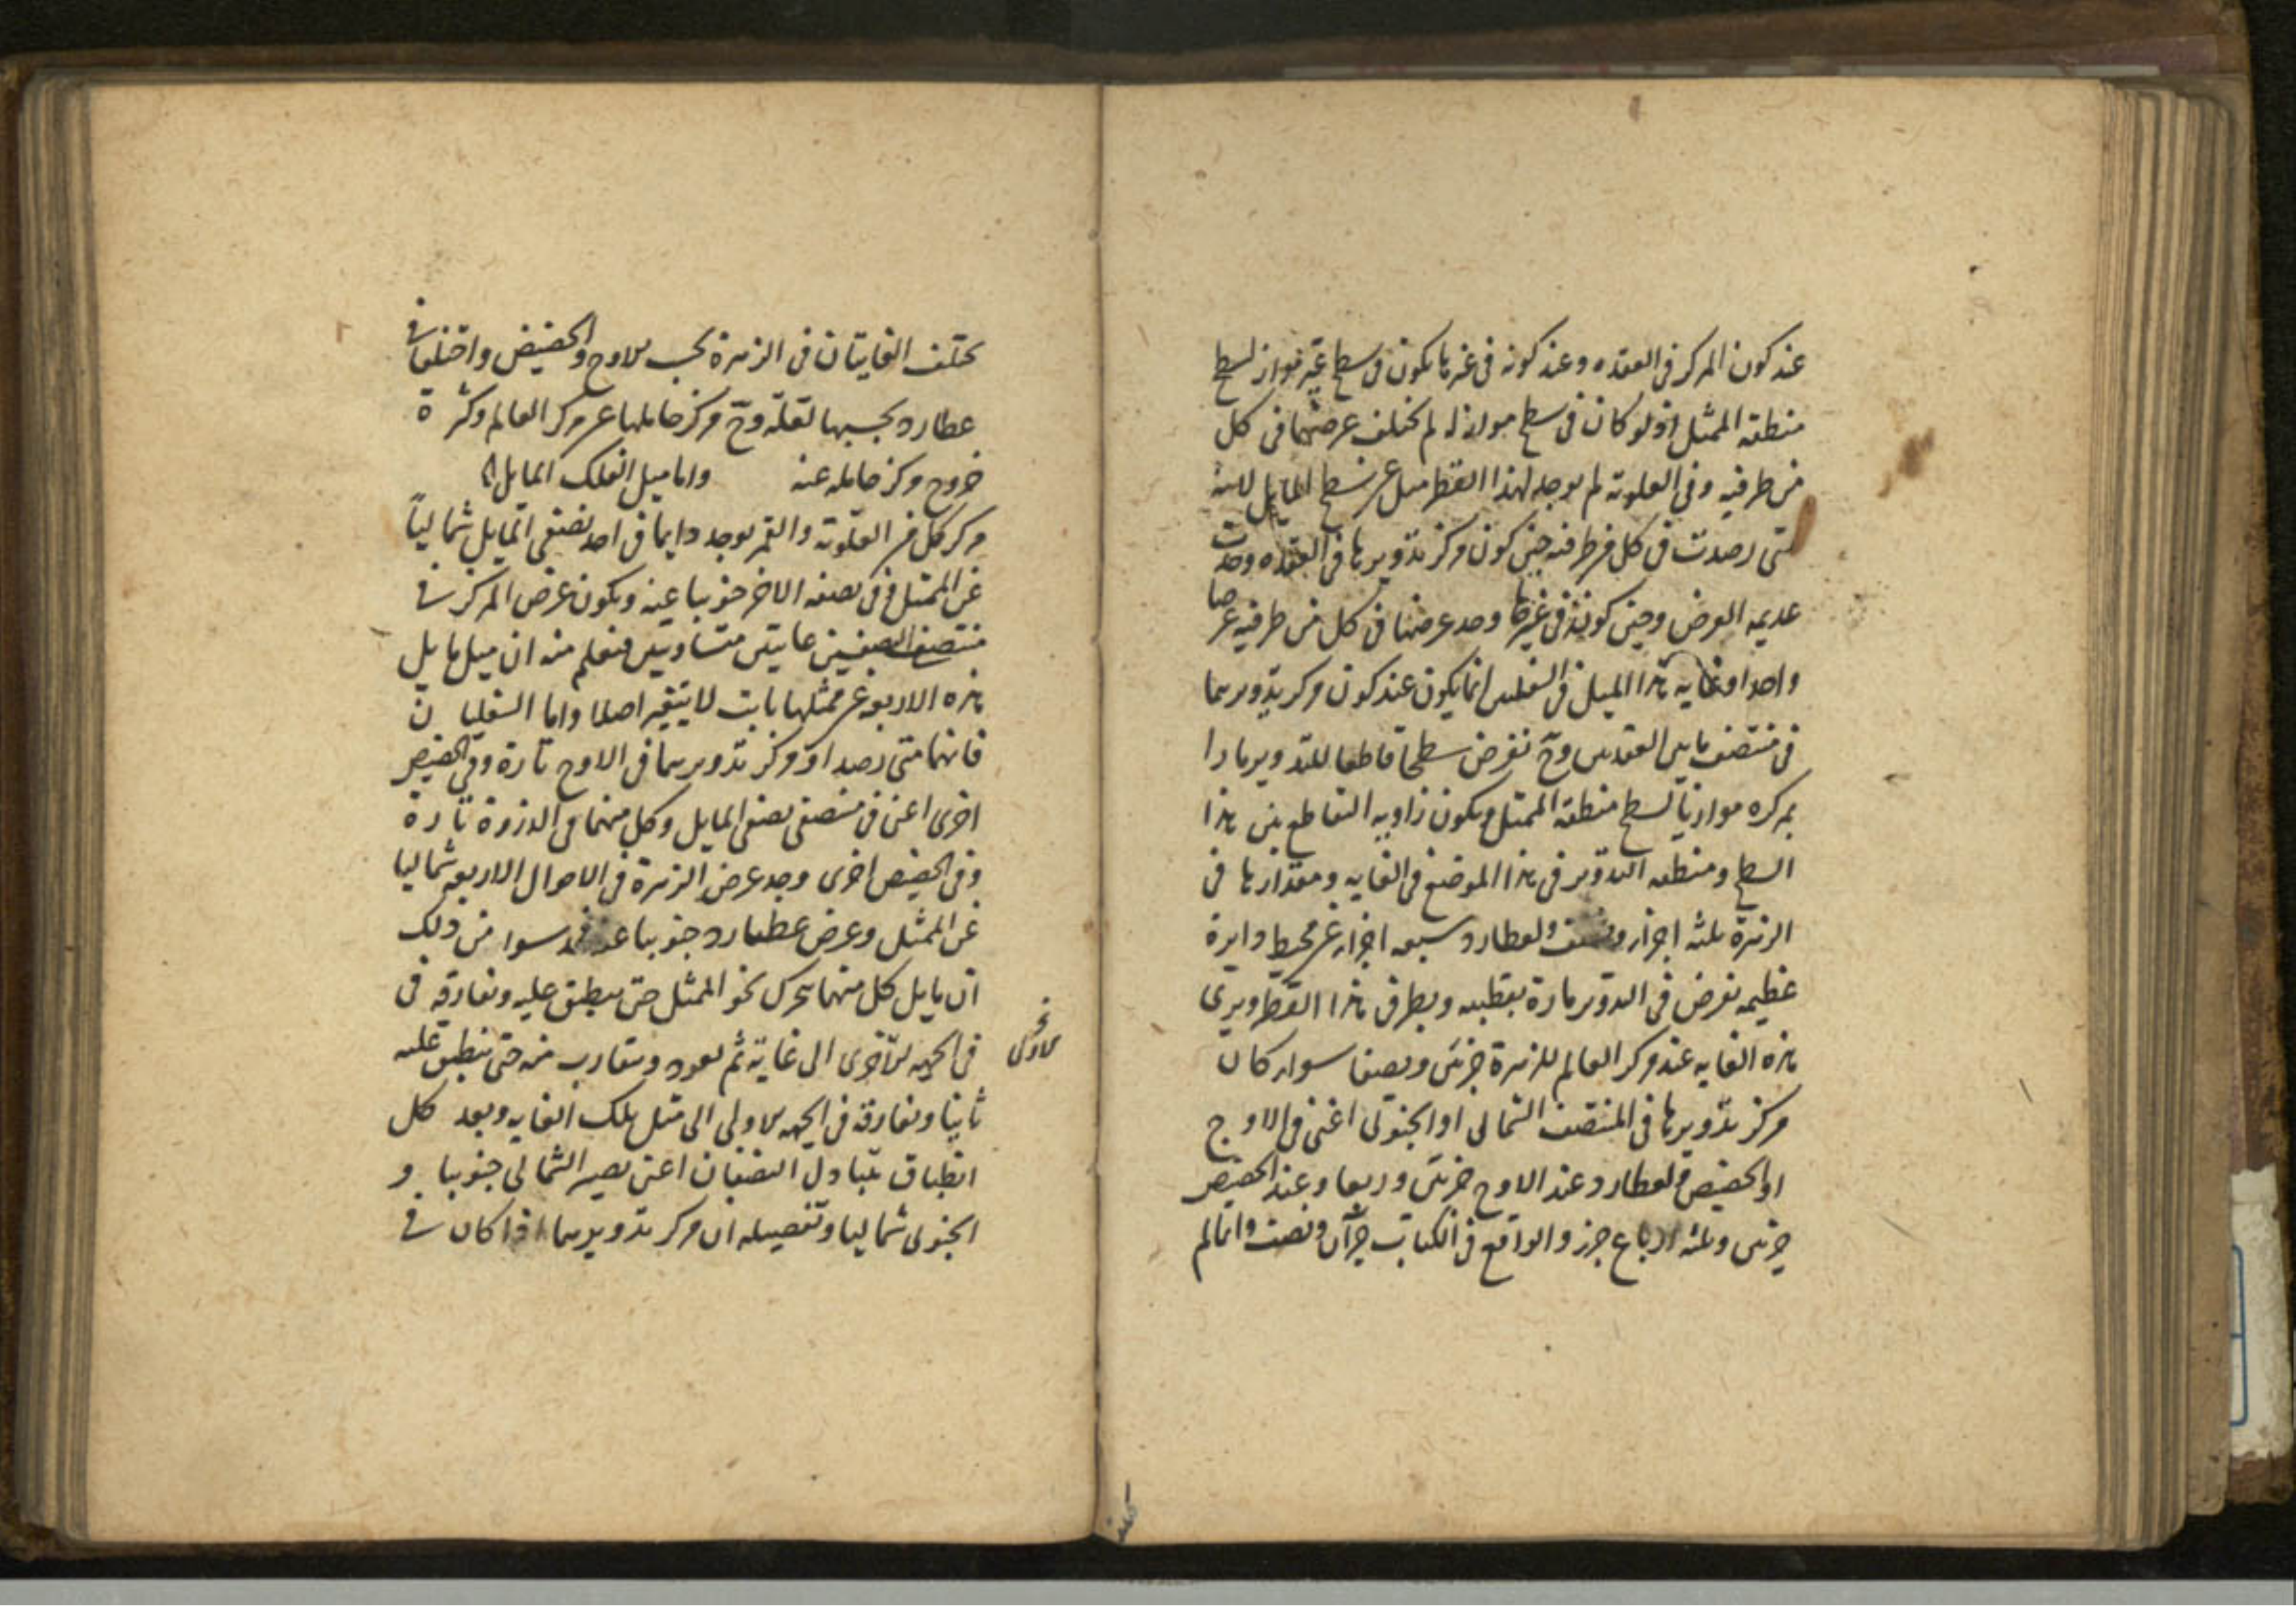 عند كون المركز فى العقده وعند كونه فى غيرها يكون فى سطح غير مواز لسطح
منطقه الممثل اذ لو كان فى سطح مواز له لم يختلف عرضها فى كل
من طرفيه وفى العلويه لم يوجد لهذا القطر ميل عن سطح المايل لانها
متى رصدت فى كل من طرفيه حين كون مركز تدويرها فى العقده وجدت
عديمه العرض وحين كونه فى غيرها وجد عرضها فى كل من طرفيه عرضا
واحدا وغايه هذا الميل فى السفليين انما يكون عند كون مركز تدويرهما
فى منتصف ما بين العقدتين وح نفرض سطحا قاطعا للتدوير مارا
بمركزه موازيا لسطح منطقه الممثل ويكون زاويه التقاطع بين هذا
السطح ومنطقه التدوير فى هذا الموضع فى الغايه ومقدارها فى
الزهرة ثلثه اجزاء ونصف ولعطارد سبعه اجزاء عن محيط دايرة
عظيمه نفرض فى التدوير مارة بقطبيه وبطرفى هذا القطر ويرى
هذه الغايه عند مركز العالم للزهرة جزئين ونصفا سواء كان
مركز تدويرها فى المنتصف الشمالى او الجنوبى اعنى فى الاوج
او الحضيض ولعطارد عند الاوج جزئين وربعا وعند الحضيض
جزئين وثلثه ارباع جزء والواقع فى الكتاب جزآن ونصف وانما لم
تختلف
يختلف الغايتان فى الزهرة بحسب الاوج والحضيض واختلفا فى
عطارد بحسبهما لقلة خروج مركز حاملها عن مركز العالم وكثرة
خروج مركز حامله عنه واما ميل الفلك المايل
مركز كل من العلوية والقمر يوجد دايما فى احد نصفى المايل شماليا
عن الممثل وفى نصفه الاخر جنوبيا عنه ويكون عرض المركز فى
منتصف النصفين غايتين متساويتين فنعلم منه ان ميل مايل
هذه الاربعة عن ممثلها ثابت لا يتغير اصلا واما السفليان
فانهما متى رصدا ومركز تدويرهما فى الاوج تارة وفى الحضيض
اخرى اعنى فى منتصفى نصفى المايل وكل منهما فى الذروة تارة
وفى الحضيض اخرى وجد عرض الزهرة فى الاحوال الاربعه شماليا
عن الممثل وعرض عطارد جنوبيا عنه من ذلك
ان مايل كل منهما يتحرك نحو الممثل حتى ينطبق عليه ويفارقه فى
فى الجهه الاخرى الى غاية ثم يعود ويتقارب منه حتى ينطبق عليه
ثانيا ويفارقه فى الجهه الاولى الى مثل تلك الغايه وبعد كل
انطباق يتبادل النصفان اعنى يصير الشمالى جنوبيا و
الجنوبى شماليا وتفصيله ان مركز تدويرهما اذا كان فى